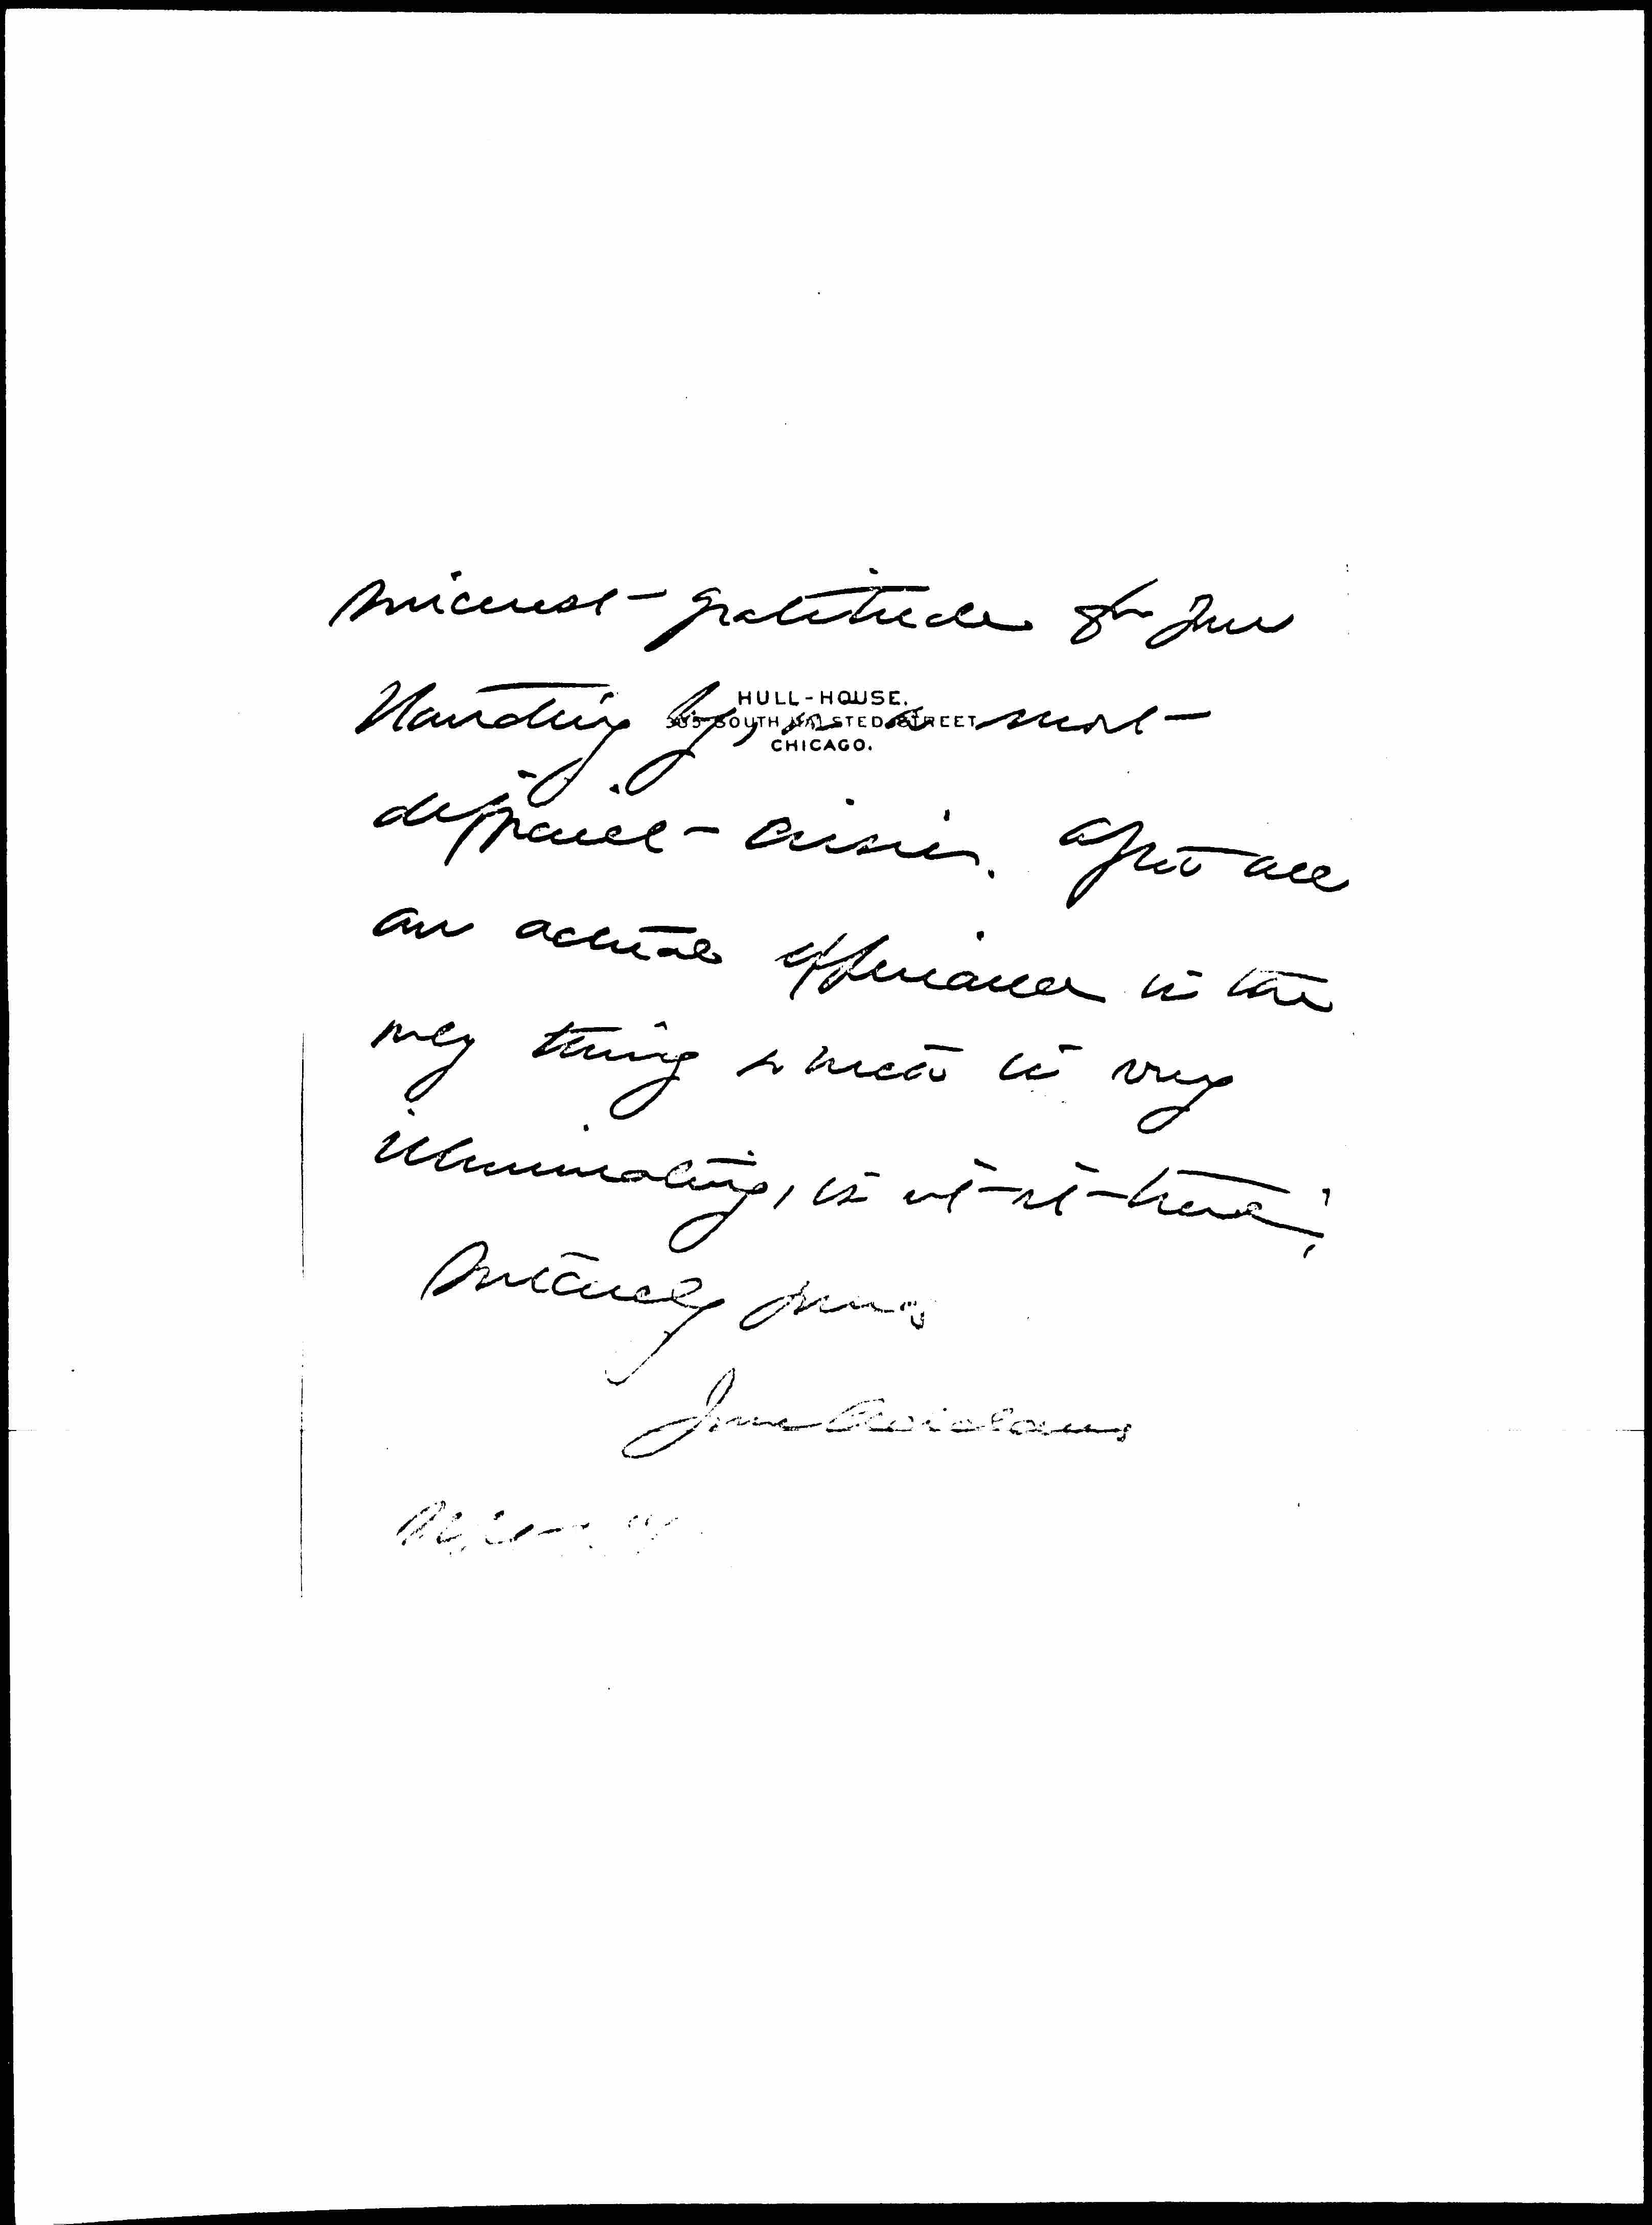 sincerest gratitude for your
HULL-HOUSE.
335 SOUTH HALSTED STREET
CHICAGO.
standing by, in a most
difficult crisis. After all
an actual experience is the
only thing which is very
illuminating, is it not true?
Sincerely yours
Jane Addams